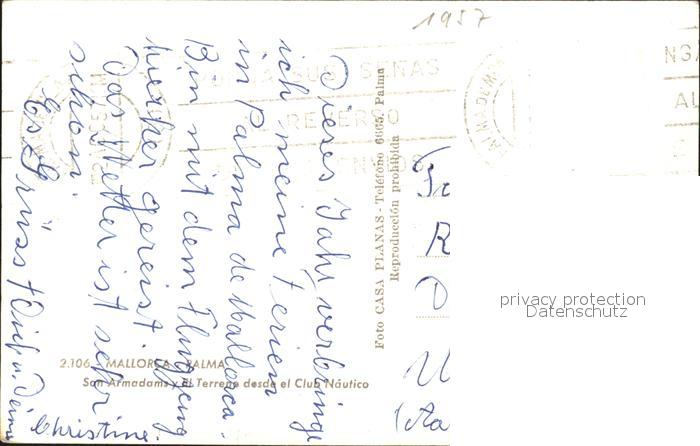 1957
Dieses Jahr verbringe
ich meine Ferien
in Palma de Mallorca.
Bin mit dem Flugzeug
hierher gereist.
Das Wetter ist sehr
schön.
Es Grüsst Dich Deine
Christine.
Foto CASA PLANAS - Teléfono 6665. Palma
Reproducción prohibida
2.106 - MALLORCA - PALMA
Son Armadams y el Terreno desde el Club Náutico
SUS SEÑAS
REVERSO
privacy protection
Datenschutz